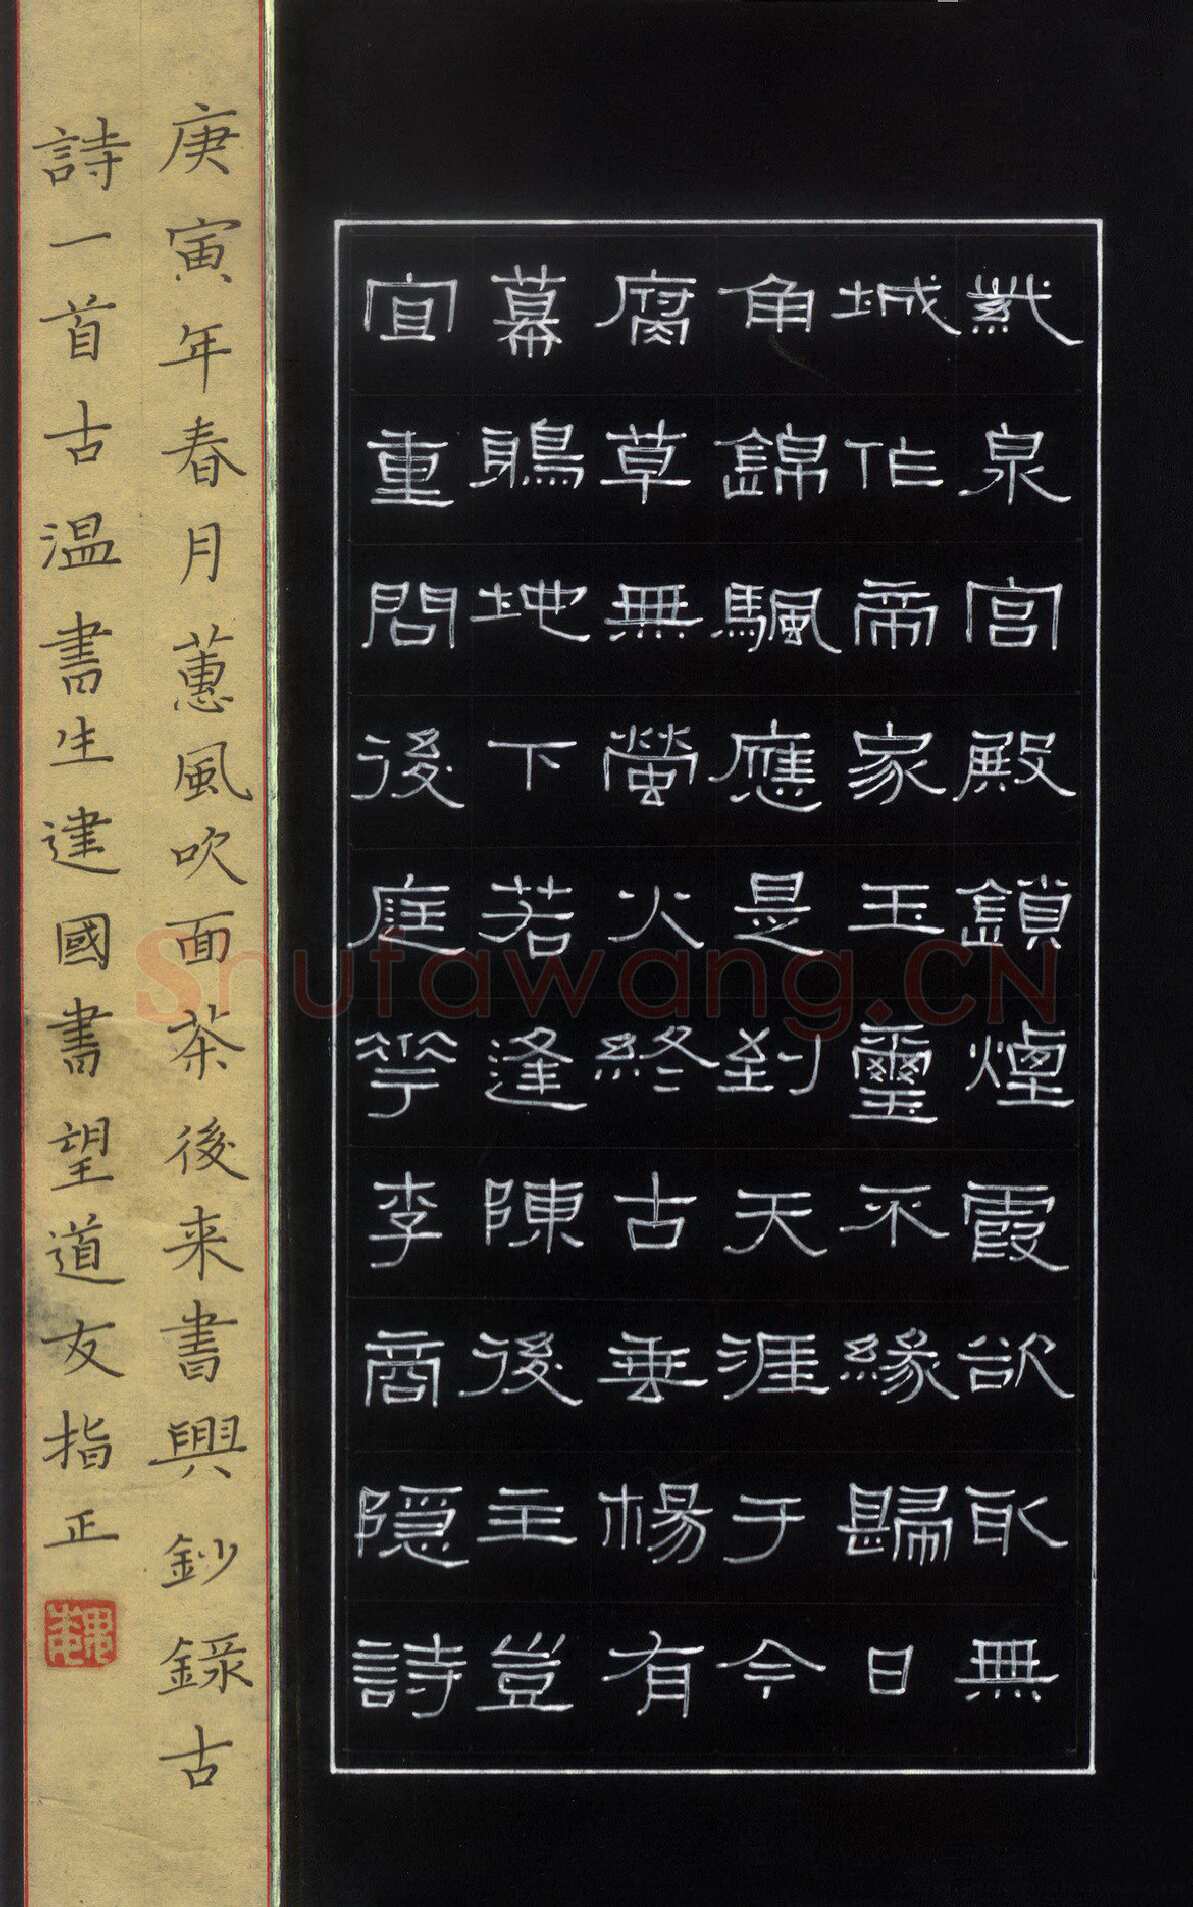 紫泉宮殿鎖煙霞欲取無
城作帝家玉璽不緣歸日
角錦颿應是到天涯于今
腐草無螢火終古垂楊有
幕鴉地下若逢陳後主豈
宜重問後庭花李商隱詩
庚寅年春月蕙風吹面茶後来書興鈔錄古
詩一首古温書生建國書望道友指正
Shufawang.CN